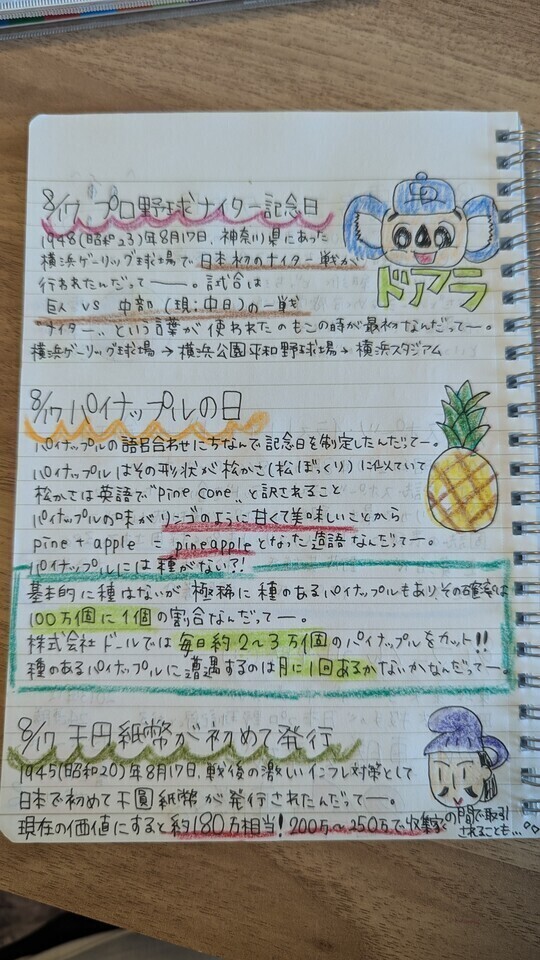 8/17 プロ野球ナイター記念日
1948(昭和23)年8月17日、神奈川県にあった
横浜ゲーリッグ球場で日本初のナイター戦が
行われたんだってー。試合は
巨人 VS 中部(現:中日)の一戦
"ナイター"という言葉が使われたのもこの時が最初なんだってー。
横浜ゲーリッグ球場→横浜公園平和野球場→横浜スタジアム
CD
ドアラ
8/17 パイナップルの日
パイナップルの語呂合わせにちなんで記念日を制定したんだってー。
パイナップルはその形状が松かさ(松ぼっくり)に似ていて
松かさは英語で"pine cone"と訳されること
パイナップルの味がリンゴのように甘くて美味しいことから
pine + apple = pineappleとなった造語なんだってー。
パイナップルには種がない?!
基本的に種はないが極稀に種のあるパイナップルもあり、その確率は
100万個に1個の割合なんだってー。
株式会社ドールでは毎日約2~3万個のパイナップルをカット!!
種のあるパイナップルに遭遇するのは月に1回あるかないかなんだってー
8/17 千円紙幣が初めて発行
1945(昭和20)年8月17日、戦後の激しいインフレ対策として
日本で初めて千圓紙幣が発行されたんだってー。
現在の価値にすると約180万相当!200万~250万で収集家の間で取引
されることも...